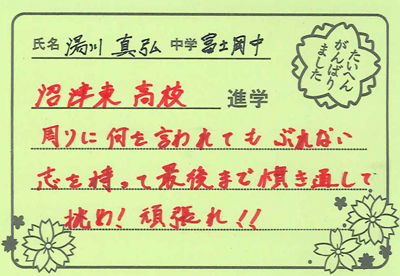 氏名 湯川 真弘 中学 富士岡中
たいへん
がんばり
ました
沼津東高校 進学
周りに何を言われてもぶれない
志を持って最後まで慎き通して
挑め！頑張れ！！